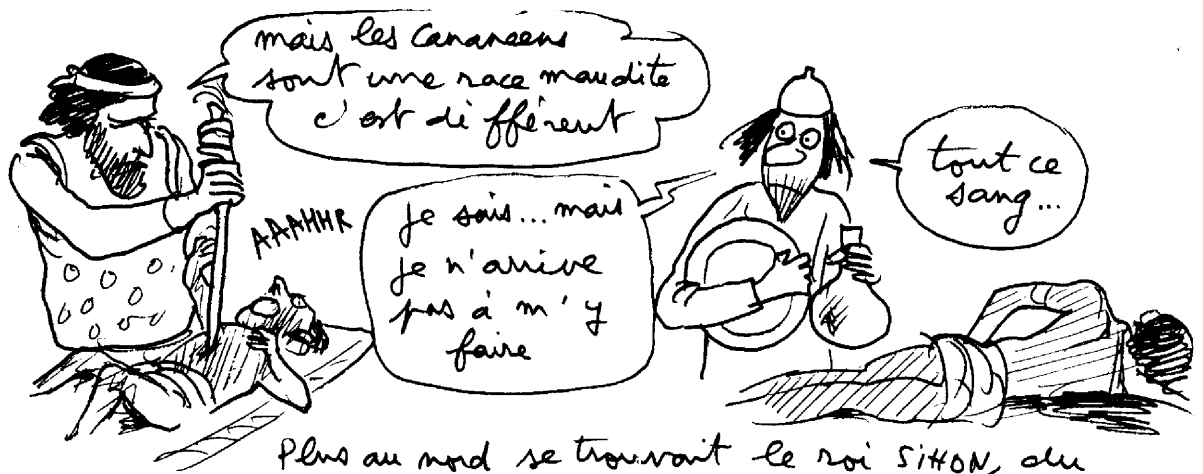 mais les Cananéens
sont une race maudite
c'est différent
AAAHHR
je sais... mais
je n'arrive
pas à m'y
faire
tout ce
sang...
Plus au nord se trouvait le roi SIHON, du